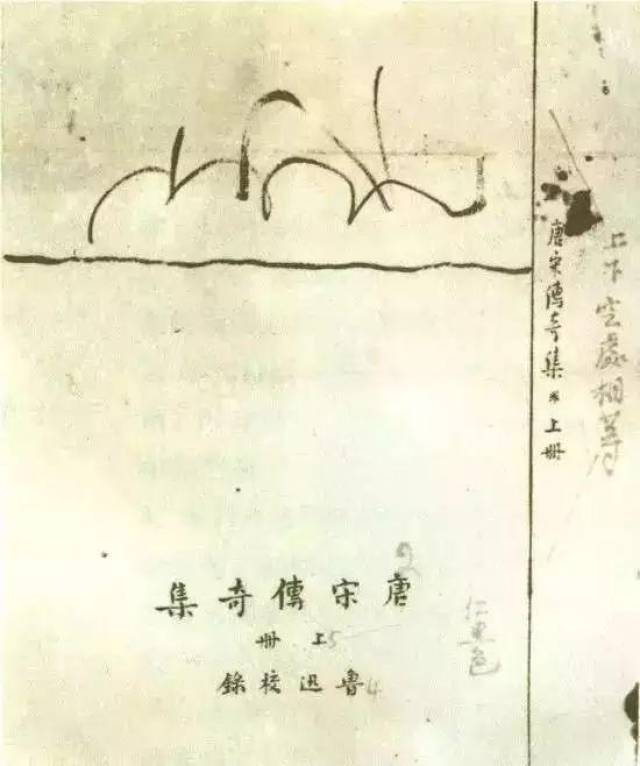 上下空處相等
唐宋傳奇集 * 上冊
2
唐宋傳奇集
5 上冊
4 魯迅校錄